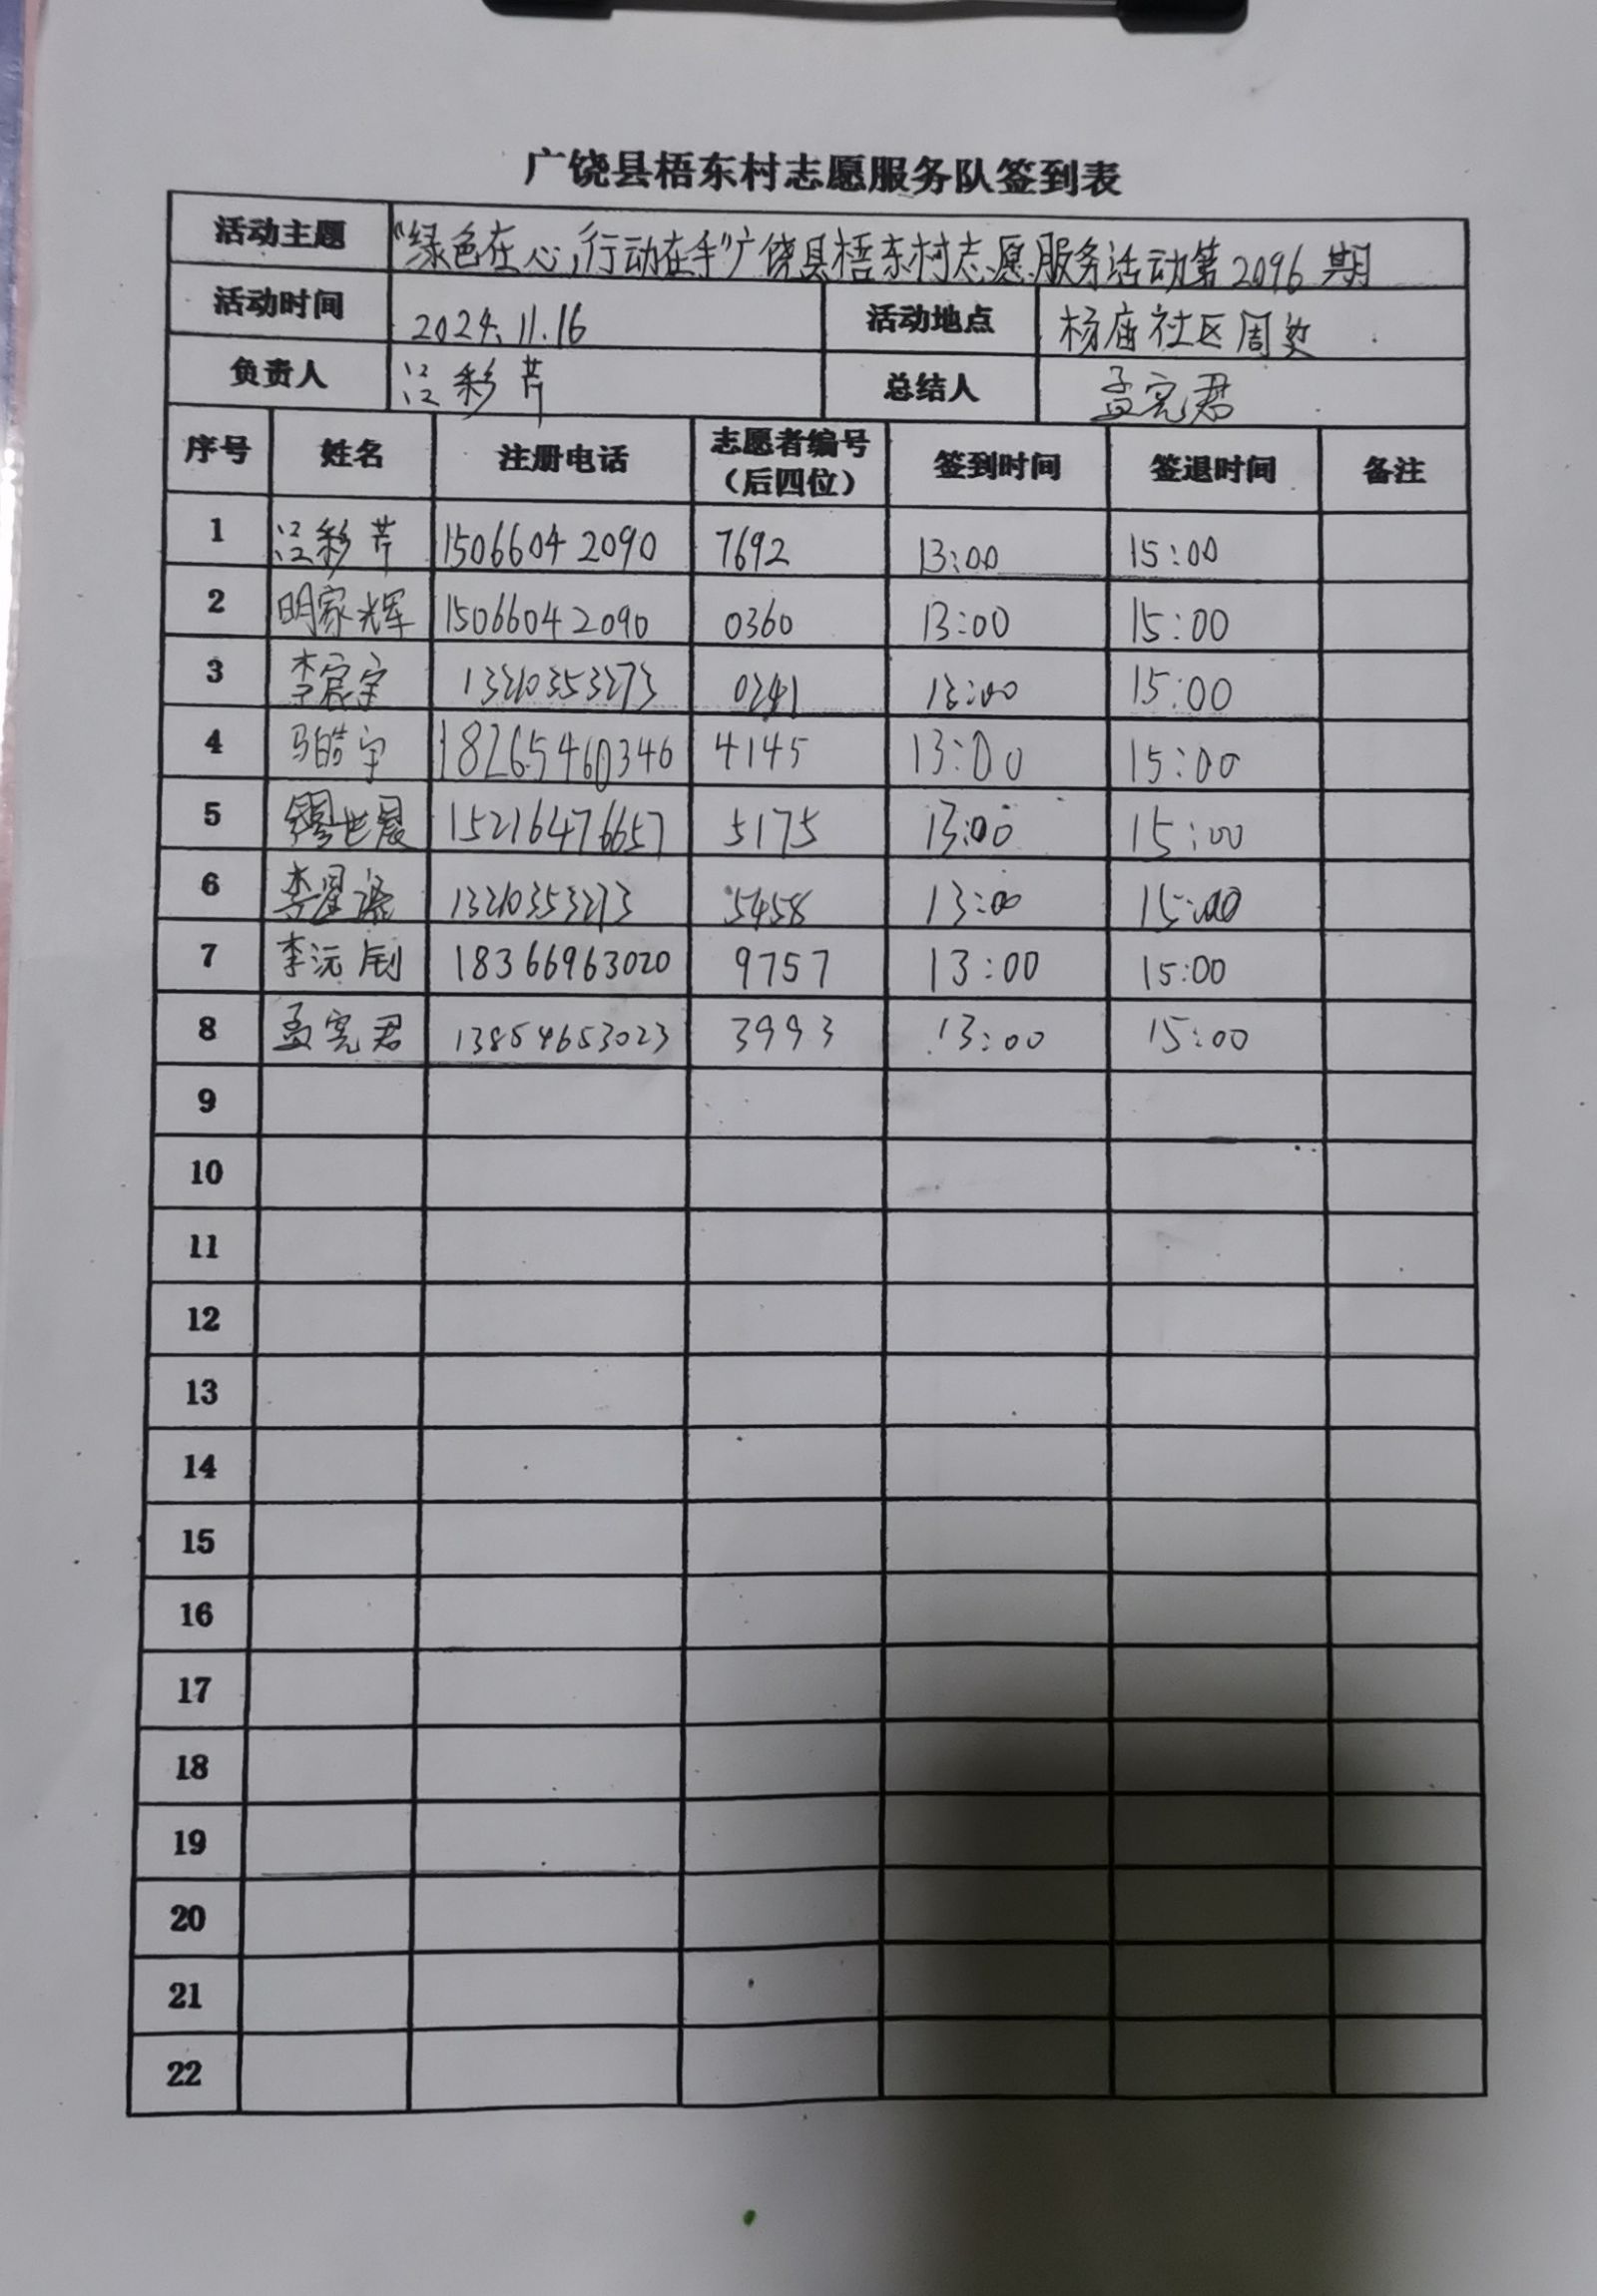 广饶县梧东村志愿服务队签到表
活动主题 “绿色在心，行动在手”广饶县梧东村志愿服务活动第2096期
活动时间 2024.11.16 活动地点 杨庙社区周边
负责人 汪彩芹 总结人 孟宪君
序号 姓名 注册电话 志愿者编号（后四位） 签到时间 签退时间 备注
1 汪彩芹 15066042090 7692 13:00 15:00
2 明家辉 15066042090 0360 13:00 15:00
3 李宸宇 13210353273 0241 13:00 15:00
4 马皓宇 18265460346 4145 13:00 15:00
5 世晨 15216476657 5175 13:00 15:00
6 李星 13210353273 5458 13:00 15:00
7 李沅钊 18366963020 9757 13:00 15:00
8 孟宪君 13854653023 3993 13:00 15:00
9
10
11
12
13
14
15
16
17
18
19
20
21
22